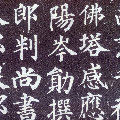 佛塔感應
陽岑勛撰
郎判尚書